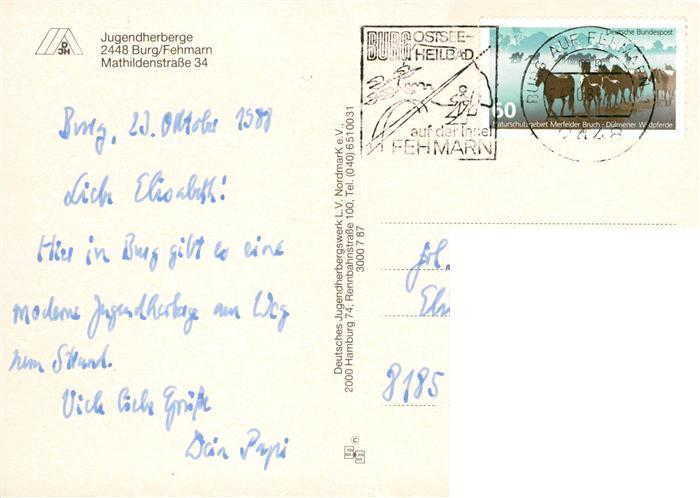 DJH
Jugendherberge
2448 Burg/Fehmarn
Mathildenstraße 34
Burg, 23. Oktober 1988
Liebe Elisabeth!
Hier in Burg gibt es eine
moderne Jugendherberge am Weg
zum Strand.
Viele liebe Grüße
Dein Papi
Deutsches Jugendherbergswerk L.V. Nordmark e.V.
2000 Hamburg 74, Rennbahnstraße 100, Tel. (040) 6510031
3000 7 87
BURG OSTSEE-
HEILBAD
auf der Insel
FEHMARN
BURG AUF FEHMARN
Deutsche Bundespost
60
Naturschutzgebiet Merfelder Bruch · Dülmener Wildpferde
8185